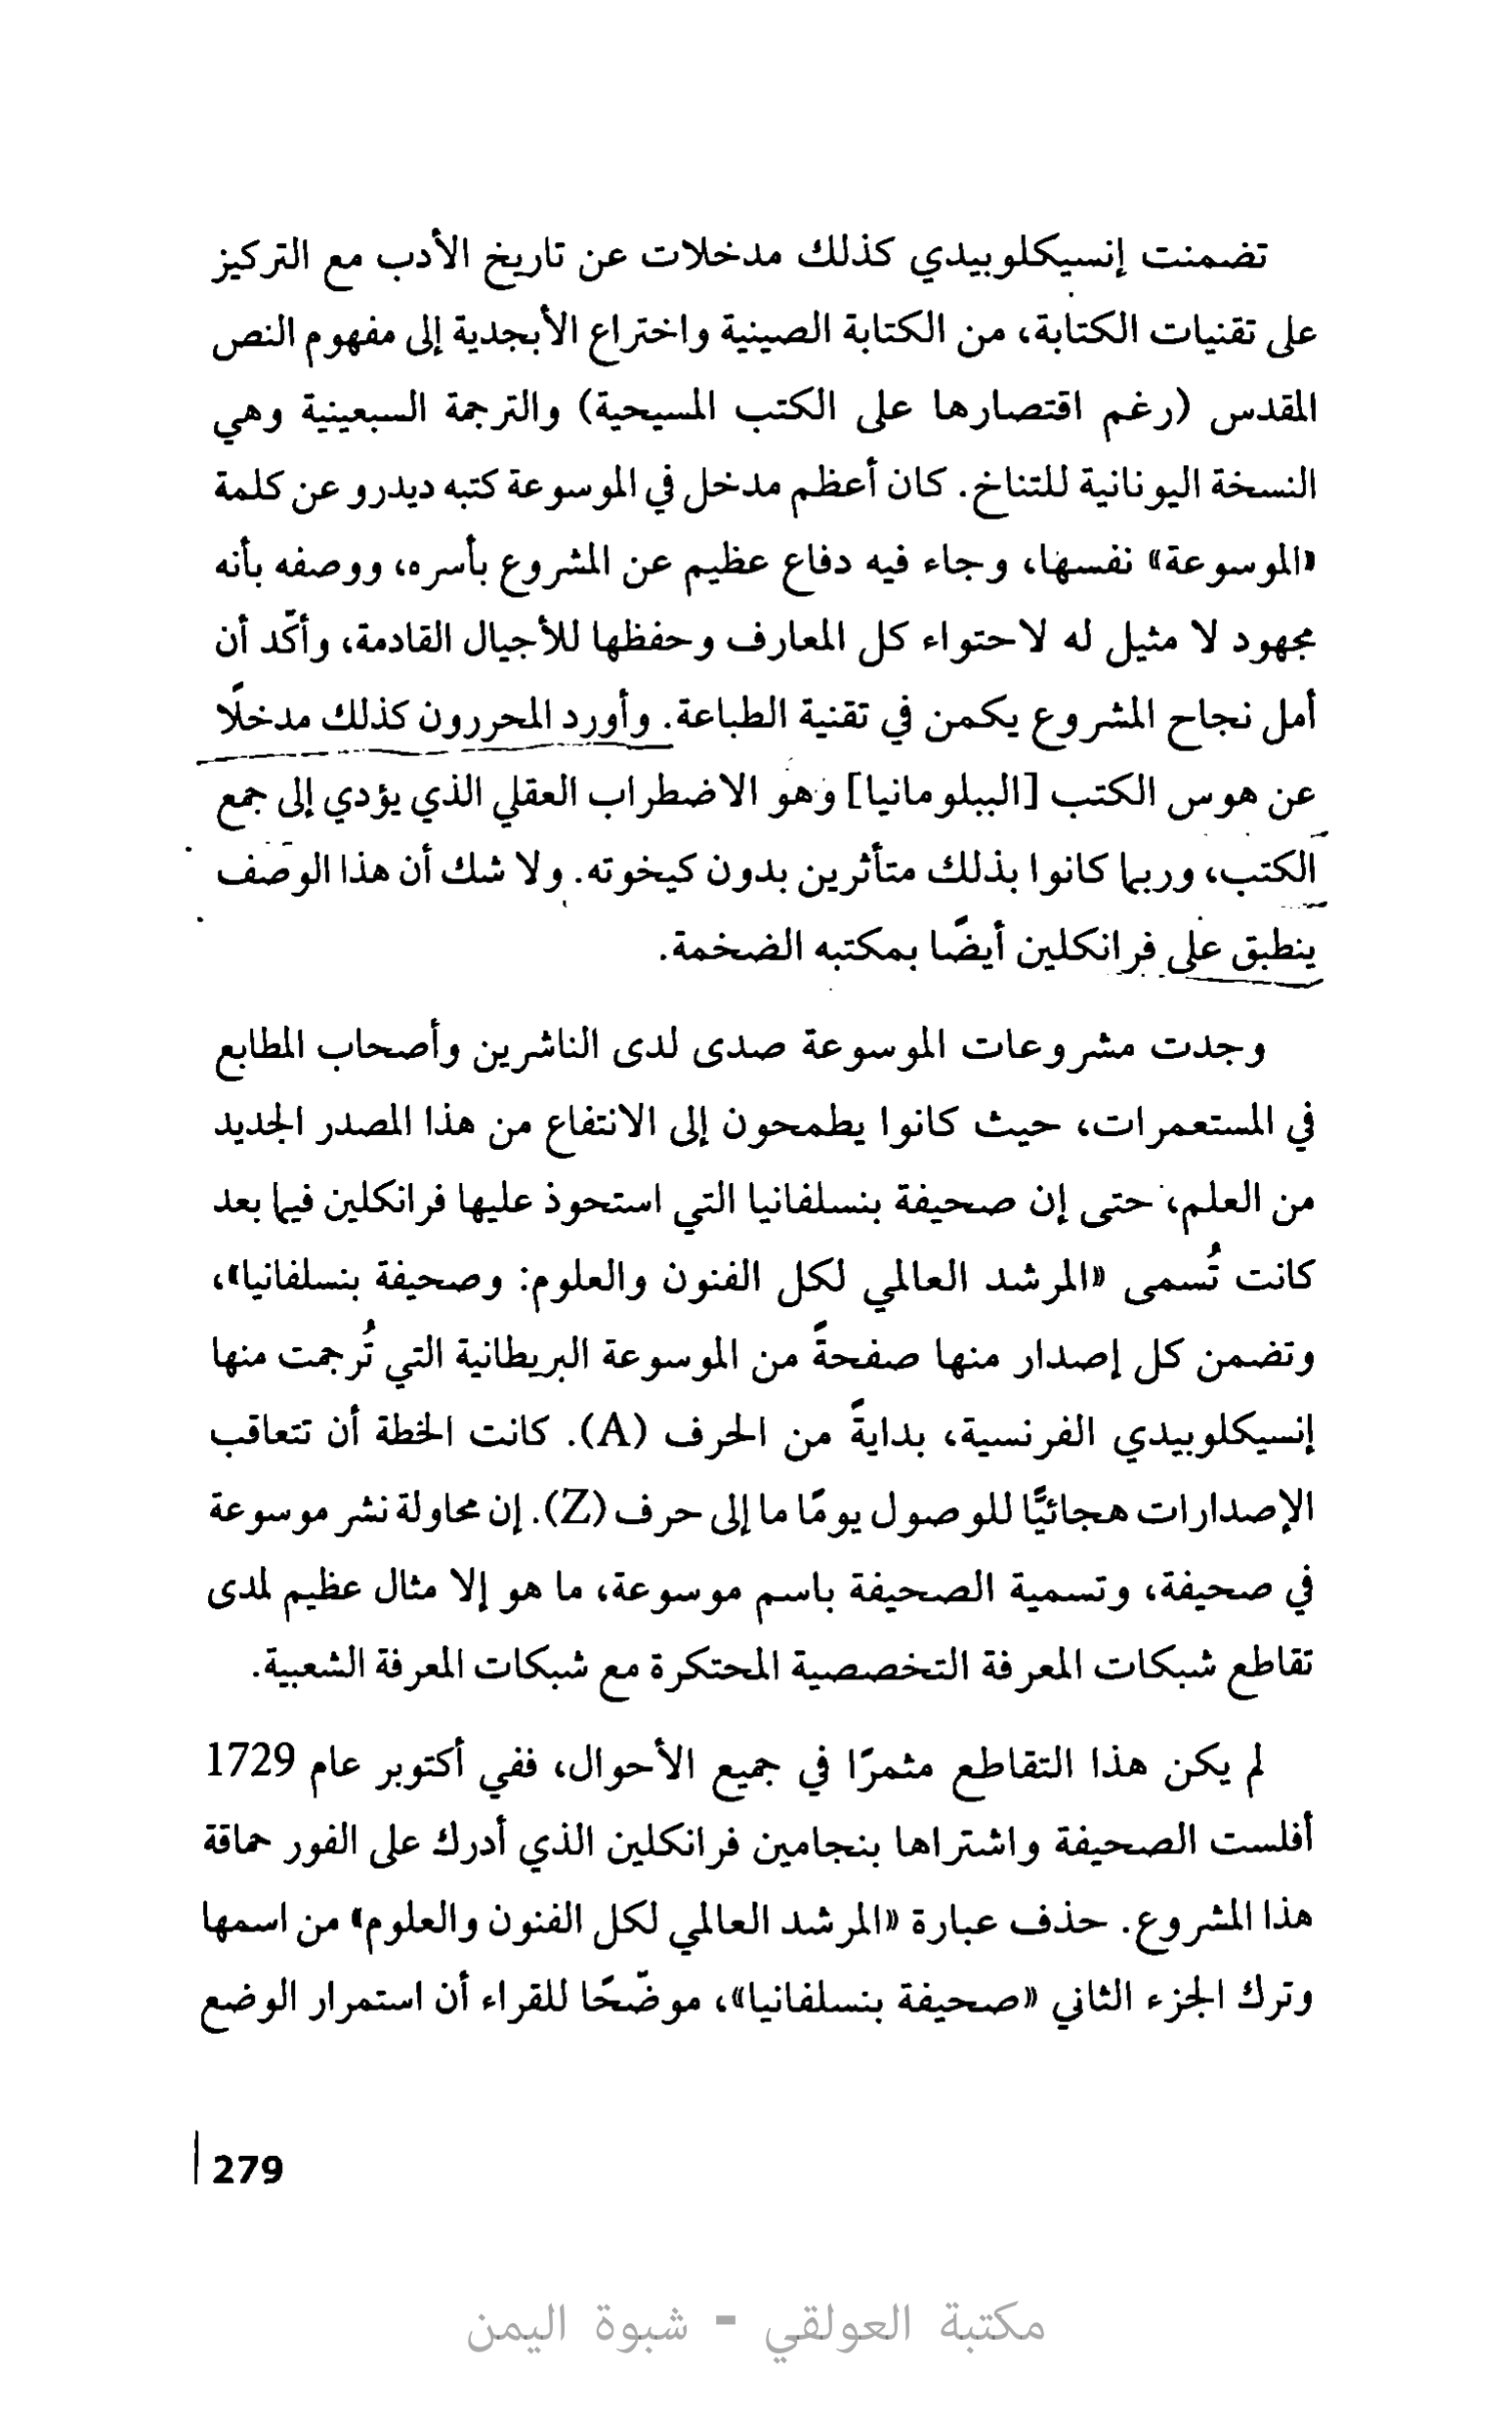 تضمنت إنسيكلوبيدي كذلك مدخلات عن تاريخ الأدب مع التركيز
على تقنيات الكتابة، من الكتابة الصينية واختراع الأبجدية إلى مفهوم النص
المقدس (رغم اقتصارها على الكتب المسيحية) والترجمة السبعينية وهي
النسخة اليونانية للتناخ. كان أعظم مدخل في الموسوعة كتبه ديدرو عن كلمة
«الموسوعة» نفسها، وجاء فيه دفاع عظيم عن المشروع بأسره، ووصفه بأنه
مجهود لا مثيل له لاحتواء كل المعارف وحفظها للأجيال القادمة، وأكّد أن
أمل نجاح المشروع يكمن في تقنية الطباعة. وأورد المحررون كذلك مدخلًا
عن هوس الكتب [الببلومانيا] وهو الاضطراب العقلي الذي يؤدي إلى جمع
الكتب، وربما كانوا بذلك متأثرين بدون كيخوته. ولا شك أن هذا الوصف
ينطبق على فرانكلين أيضًا بمكتبه الضخمة.
وجدت مشروعات الموسوعة صدى لدى الناشرين وأصحاب المطابع
في المستعمرات، حيث كانوا يطمحون إلى الانتفاع من هذا المصدر الجديد
من العلم، حتى إن صحيفة بنسلفانيا التي استحوذ عليها فرانكلين فيما بعد
كانت تُسمى «المرشد العالمي لكل الفنون والعلوم: وصحيفة بنسلفانيا»،
وتضمن كل إصدار منها صفحةً من الموسوعة البريطانية التي تُرجمت منها
إنسيكلوبيدي الفرنسية، بدايةً من الحرف (A). كانت الخطة أن تتعاقب
الإصدارات هجائيًّا للوصول يومًا ما إلى حرف (Z). إن محاولة نشر موسوعة
في صحيفة، وتسمية الصحيفة باسم موسوعة، ما هو إلا مثال عظيم لمدى
تقاطع شبكات المعرفة التخصصية المحتكرة مع شبكات المعرفة الشعبية.
لم يكن هذا التقاطع مثمرًا في جميع الأحوال، ففي أكتوبر عام 1729
أفلست الصحيفة واشتراها بنجامين فرانكلين الذي أدرك على الفور حماقة
هذا المشروع. حذف عبارة «المرشد العالمي لكل الفنون والعلوم» من اسمها
وترك الجزء الثاني «صحيفة بنسلفانيا»، موضّحًا للقراء أن استمرار الوضع
279
مكتبة العولقي - شبوة اليمن